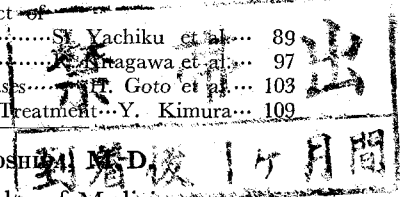 ct of
S. Yachiku et al. 89
Kitagawa et al. 97
ses H. Goto et al. 103
Treatment Y. Kimura 109
禁 出
OSHIDA, M. D.
到着後 1ケ月間
of Medicine